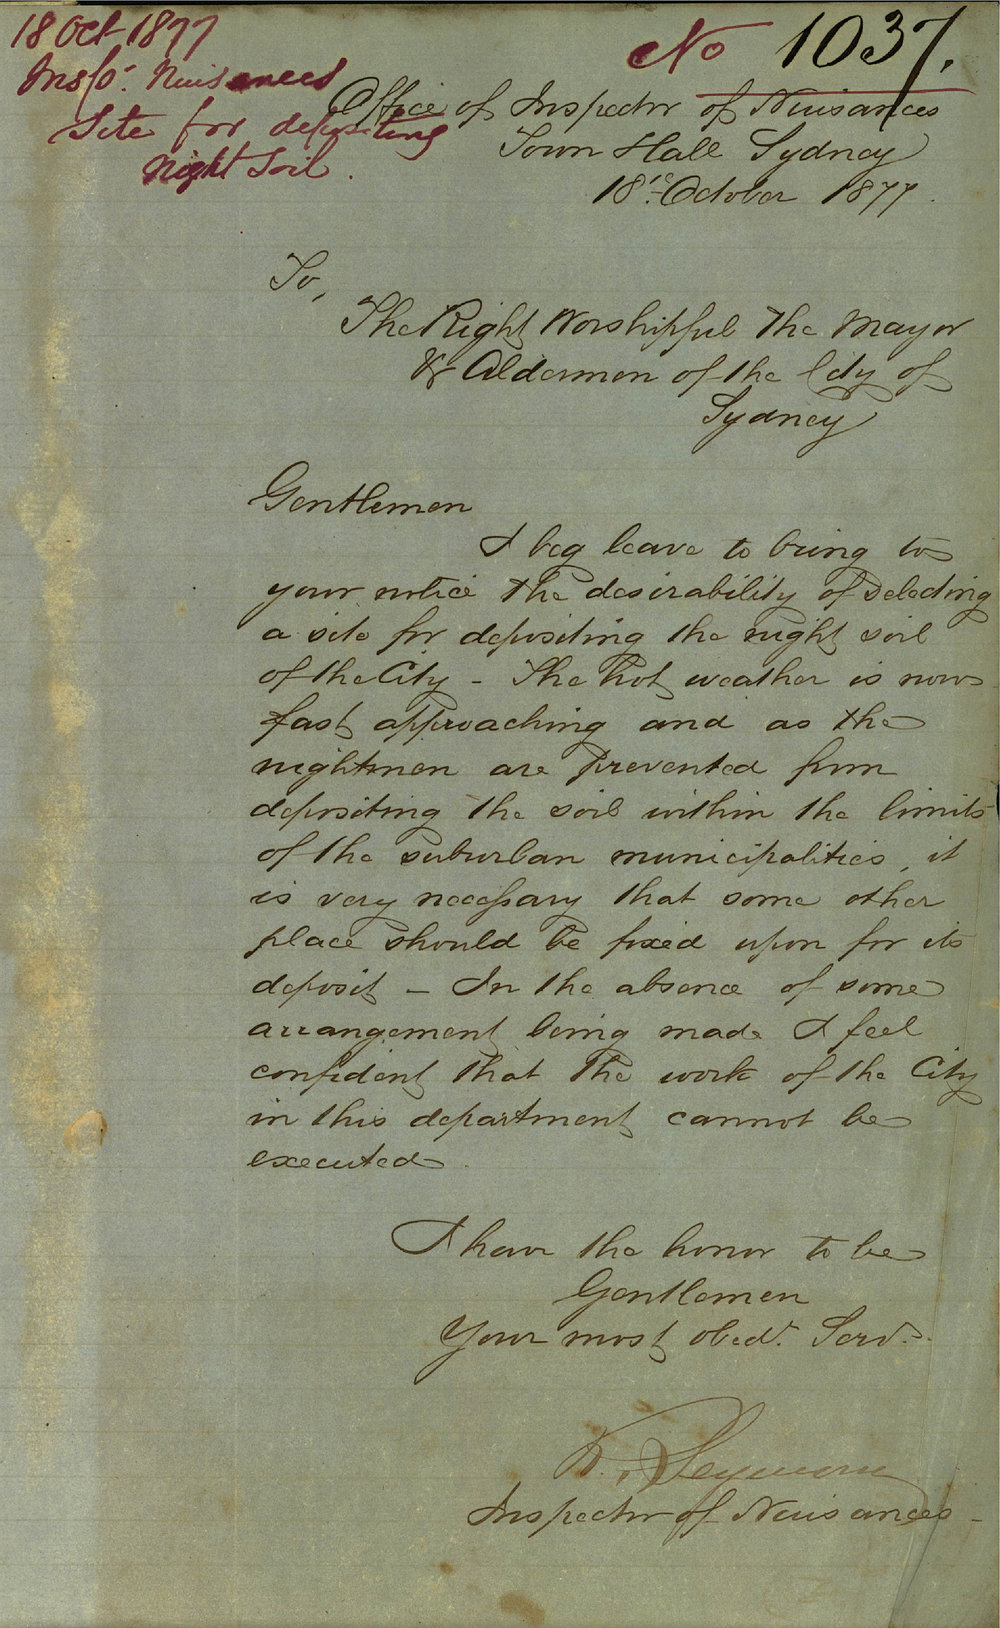 18 Oct 1877
Inspr. Nuisances
Site for depositing
Night Soil.
No 1037.
Office of Inspector of Nuisances
Town Hall Sydney
18th October 1877.
To,
The Right Worshipful The Mayor
& Aldermen of the City of
Sydney
Gentlemen
I beg leave to bring to
your notice the desirability of selecting
a site for depositing the night soil
of the City - The hot weather is now
fast approaching and as the
nightmen are prevented from
depositing the soil within the limits
of the suburban municipalities, it
is very necessary that some other
place should be fixed upon for its
deposit - In the absence of some
arrangement being made I feel
confident that the work of the City
in this department cannot be
executed.
I have the honor to be
Gentlemen
Your most obedt. Servt.
R. Seymour
Inspector of Nuisances -